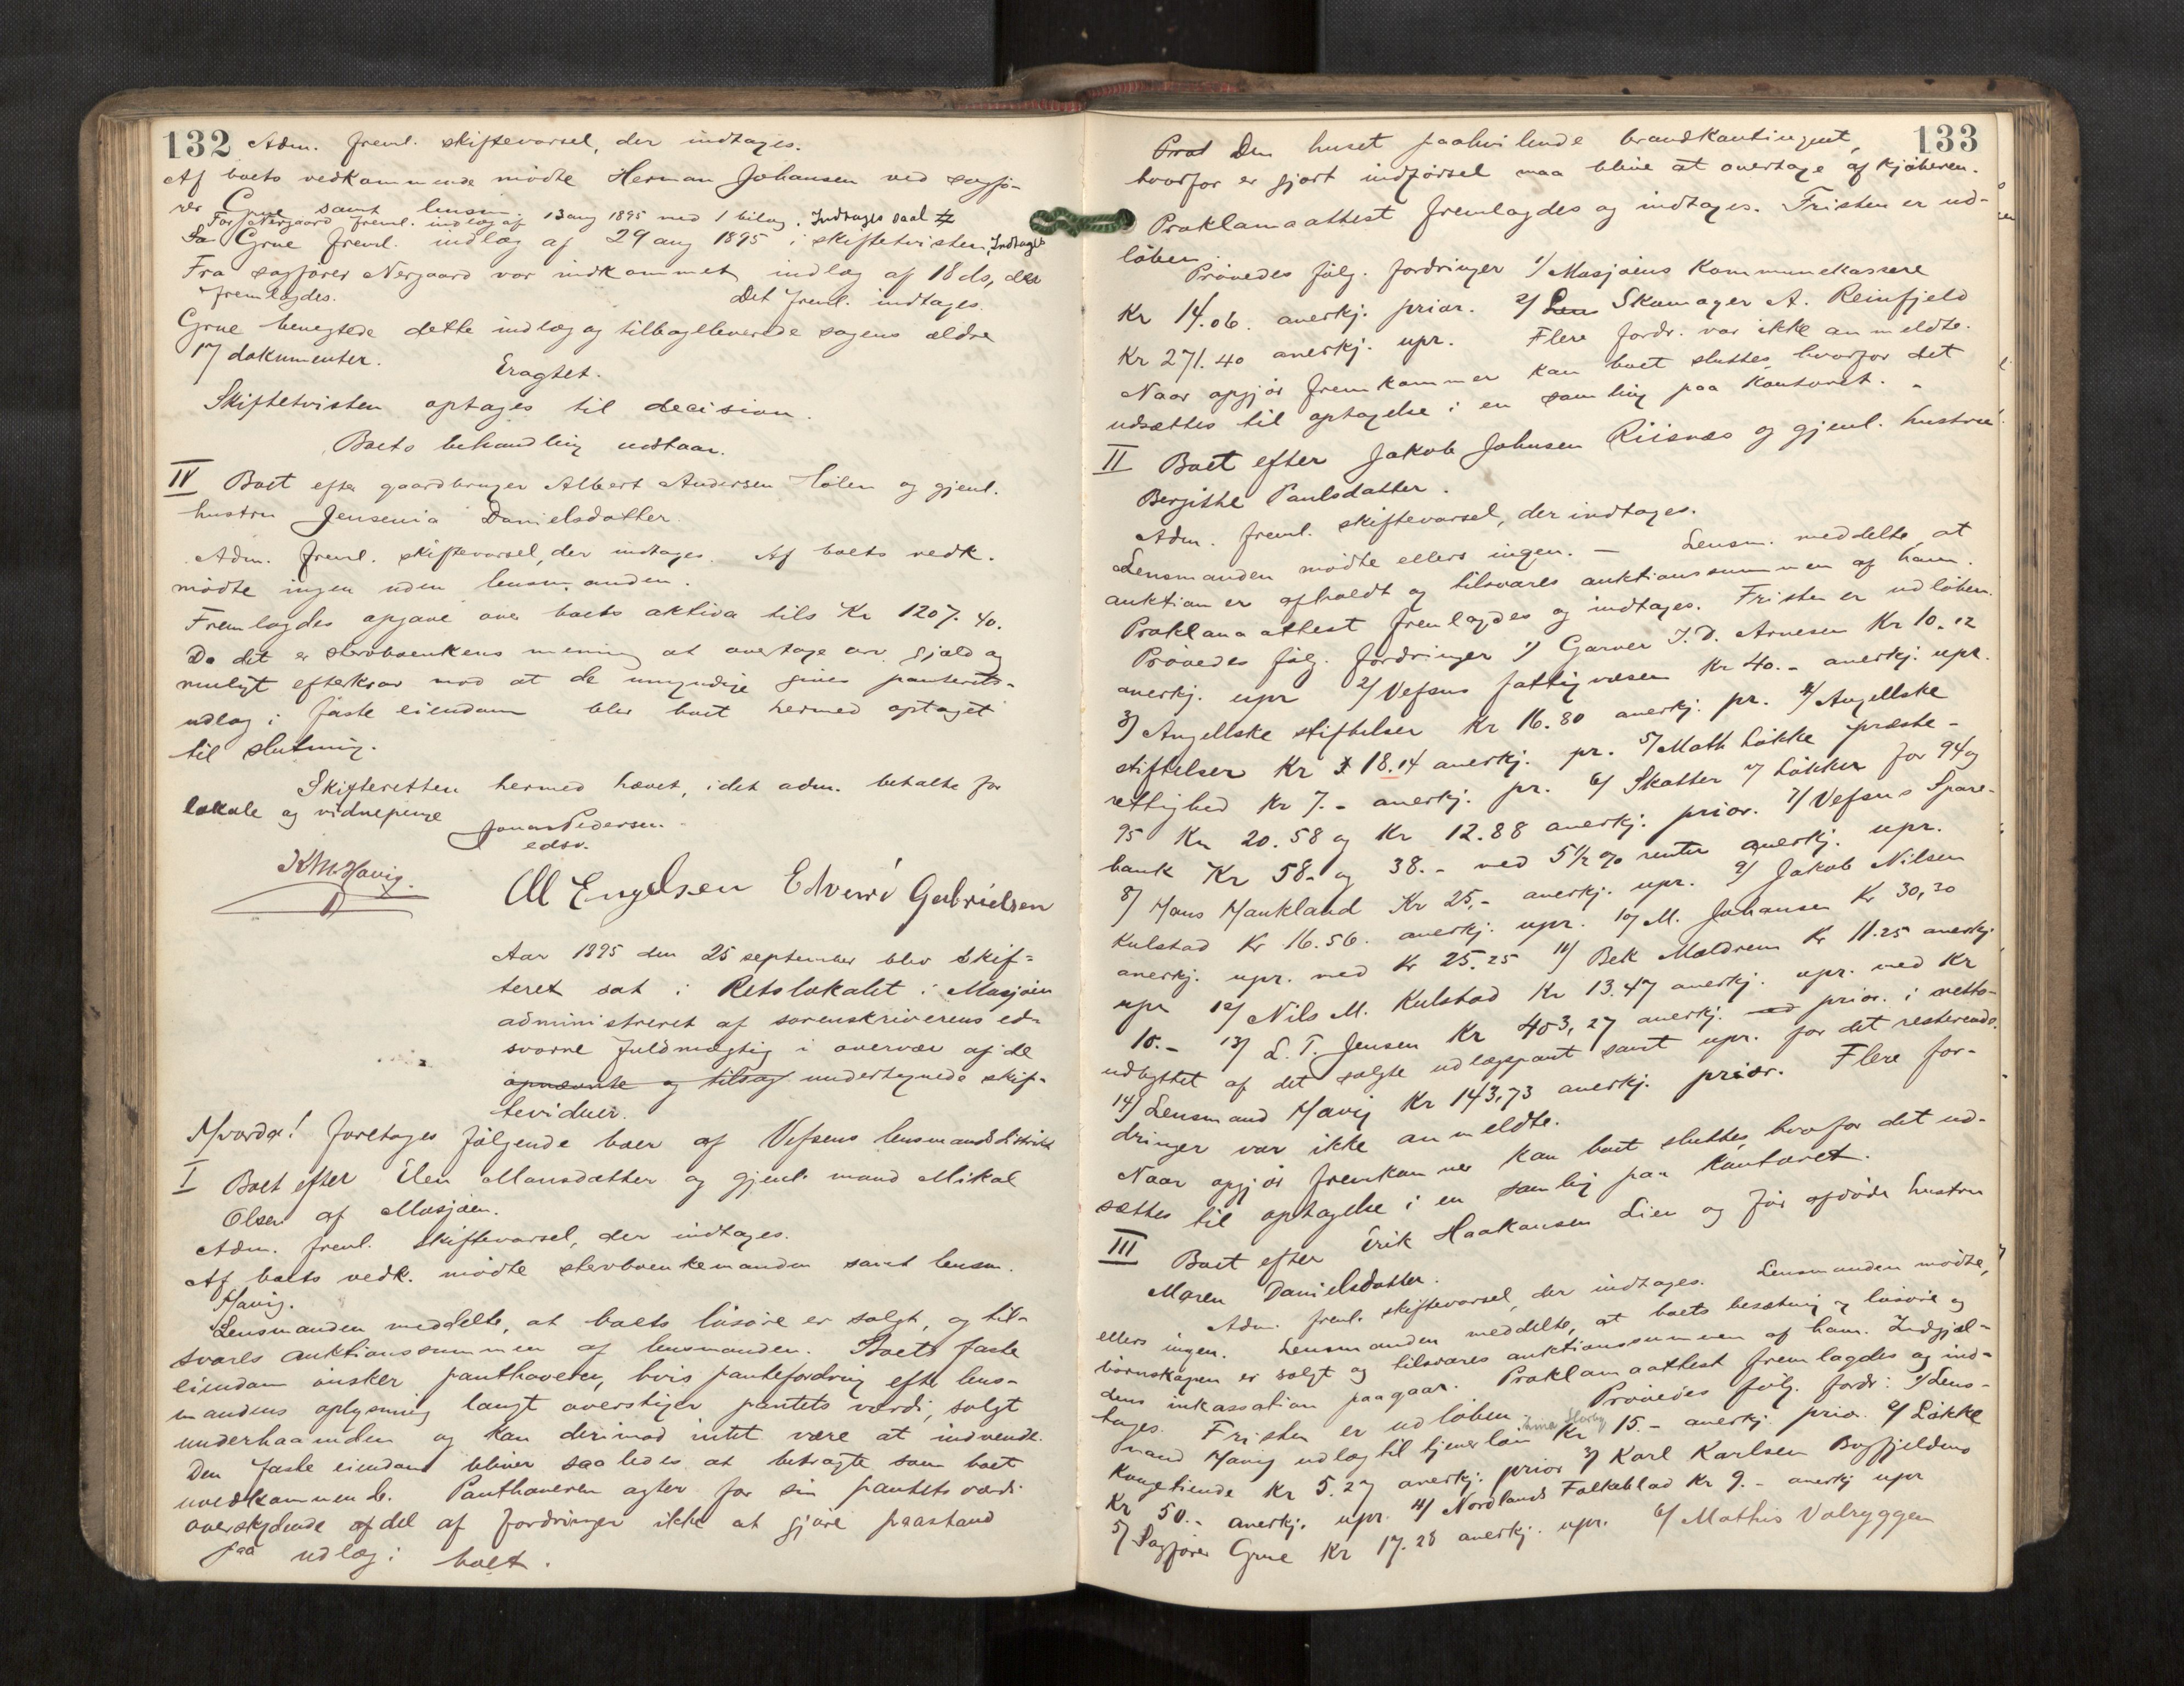 132 Adm. freml. skiftevarsel, der indtages.
Af boets vedkommende mødte Herman Johansen ved sagfø-
rer Grue samt lensm.
For Nergaard freml. indlæg af 13 aug 1895 med 1 bilag. Indtages
Grue freml. indlæg af 29 aug 1895 i skiftetvisten, Indtages
Fra sagfører Nergaard var indkommet indlæg af 18 ds, der
fremlagdes. Det freml. indtages.
Grue benegtede dette indlæg og tilbageleverede sagens ældre
17 dokumenter. Eragtet.
Skiftetvisten optages til decision.
Boets behandling udstaar.
IV Boet efter gaardbruger Albert Andersen Hølen og gjenl.
hustru Jensenia Danielsdatter.
Adm. freml. skiftevarsel, der indtages. Af boets vedk.
mødte ingen uden lensmanden.
Fremlagdes opgave over boets aktiva tils Kr 1207.40.
Da det er stervboenkens mening at overtage arv gjæld og
muligt efterkrav mod at de umyndige gives panterets-
udlæg i faste eiendom blev boet hermed optaget
til slutning.
Skifteretten hermed hævet, idet adm. betalte for
lokale og vidnepenge
Jonas Pedersen
edsv.
KMHavig.
M Engelsen Edvard Gabrielsen
Aar 1895 den 25 september blev skif-
teret sat i Retslokalet i Mosjøen
administreret af sorenskriverens ed-
svorne fuldmægtig i overvær af de
opnævnte og tilsag undertegnede skif-
tevidner.
Hvorda! foretages følgende boer af Vefsens lensmandsdistrikt
I Boet efter Elen Monsdatter og gjenl. mand Mikal
Olsen af Mosjøen.
Adm. freml. skiftevarsel, der indtages.
Af boets vedk. mødte stervboenkemanden samt lensm.
Havig.
Lensmanden meddelte, at boets løsøre er solgt, og til-
svares auktionssummen af lensmanden. Boets faste
eiendom ønsker panthaveren, hvis pantefordring efter lens-
mandens oplysning langt overstiger pantets værdi, solgt
underhaanden og kan derimod intet være at indvende.
Den faste eiendom bliver saaledes at betragte som boet
uvedkommende. Panthaveren agter for sin pantets værdi
overskydende afdel af fordringer ikke at gjøre paastand
paa udlæg i boet.
133
Den huset paahvilende brandkontingent,
hvorfor er gjort indførsel maa blive at overtage af kjøberen.
Proklamaattest fremlagdes og indtages. Fristen er ud-
løben.
Prøvedes følg. fordringer 1/ Mosjøens Kommunekassere
Kr 14.06. anerkj. prior. 2/ Len Skomager A. Reinfjeld
Kr 271.40 anerkj. upr. Flere fordr. var ikke anmeldte.
Naar opgjør fremkommer kan boet sluttes, hvorfor det
udsættes til optagelse i en samling paa kontoret. -
II Boet efter Jakob Johnsen Riisnes og gjenl. hustru
Bergithe Paulsdatter.
Adm. freml. skiftevarsel, der indtages.
Lensmanden mødte ellers ingen. - Lensm. meddelte, at
auktion er afholdt og tilsvares auktionssummen af ham.
Proklamaattest fremlagdes og indtages. Fristen er udløben.
Prøvedes følg. fordringer 1/ Garver I. D. Arnesen Kr 10.12
anerkj. upr 2/ Vefsns fattigvæsen Kr 40.- anerkj. upr.
3) Angellske stiftelser Kr 16.80 anerkj. pr. 4/ Angellske
stiftelser Kr 18.14 anerkj. pr. 5/ Math Løkke præste-
rettighed Kr 7.- anerkj. pr. 6/ Skatter Løkker for 94 og
95 Kr 20.58 og Kr 12.88 anerkj. prior. 7/ Vefsns Spare-
bank Kr 58.- og 38.- med 5 1/2 % renter anerkj. upr.
8/ Hans Haukland Kr 25.- anerkj. upr. 9/ Jakob Nilsen
Kulstad Kr 16.56. anerkj. upr. 10/ M. Johansen Kr 30,30
anerkj. upr. med Kr 25.25 11/ Bek Mældrem Kr 11.25 anerkj.
upr 12/ Nils M. Kulstad Kr 13.47 anerkj. upr. med Kr
10.- 13/ L. T. Jensen Kr 403,27 anerkj. prior. i netto-
udbyttet af det solgte udlægspant samt upr. for det resterende.
14/ Lensmand Havig Kr 143,73 anerkj. prior. Flere for-
dringer var ikke anmeldte.
Naar opgjør fremkommer kan boet sluttes, hvofor det ud-
sættes til optagelse i en samling paa kontoret.
III Boet efter Erik Haakonsen Lien og før afdøde hustru
Maren Danielsdatter.
Adm. freml. skiftevarsel, der indtages. Lensmanden mødte,
ellers ingen. Lensmanden meddelte, at boets besætning, løsøre og
bornskapen er solgt og tilsvares auktionssummen af ham. Indgjæl-
dens inkassation paagaar. Proklamaattest fremlagdes og ind-
tages. Fristen er udløben. Prøvedes følg. fordr: 1/ Lens-
mand Havig udlæg til tjenerløn Kr 15.- anerkj. prior. 2/ Løkke
Kongetiende Kr 5.27 anerkj. prior 3/ Karl Karlsen Bogfjeldmo
Kr 50.- anerkj. upr. 4/ Nordlands Folkeblad Kr 9.- anerkj upr
5/ Sagfører Grue Kr 17.28 anerkj. upr. 6/ Mathis Valryggen